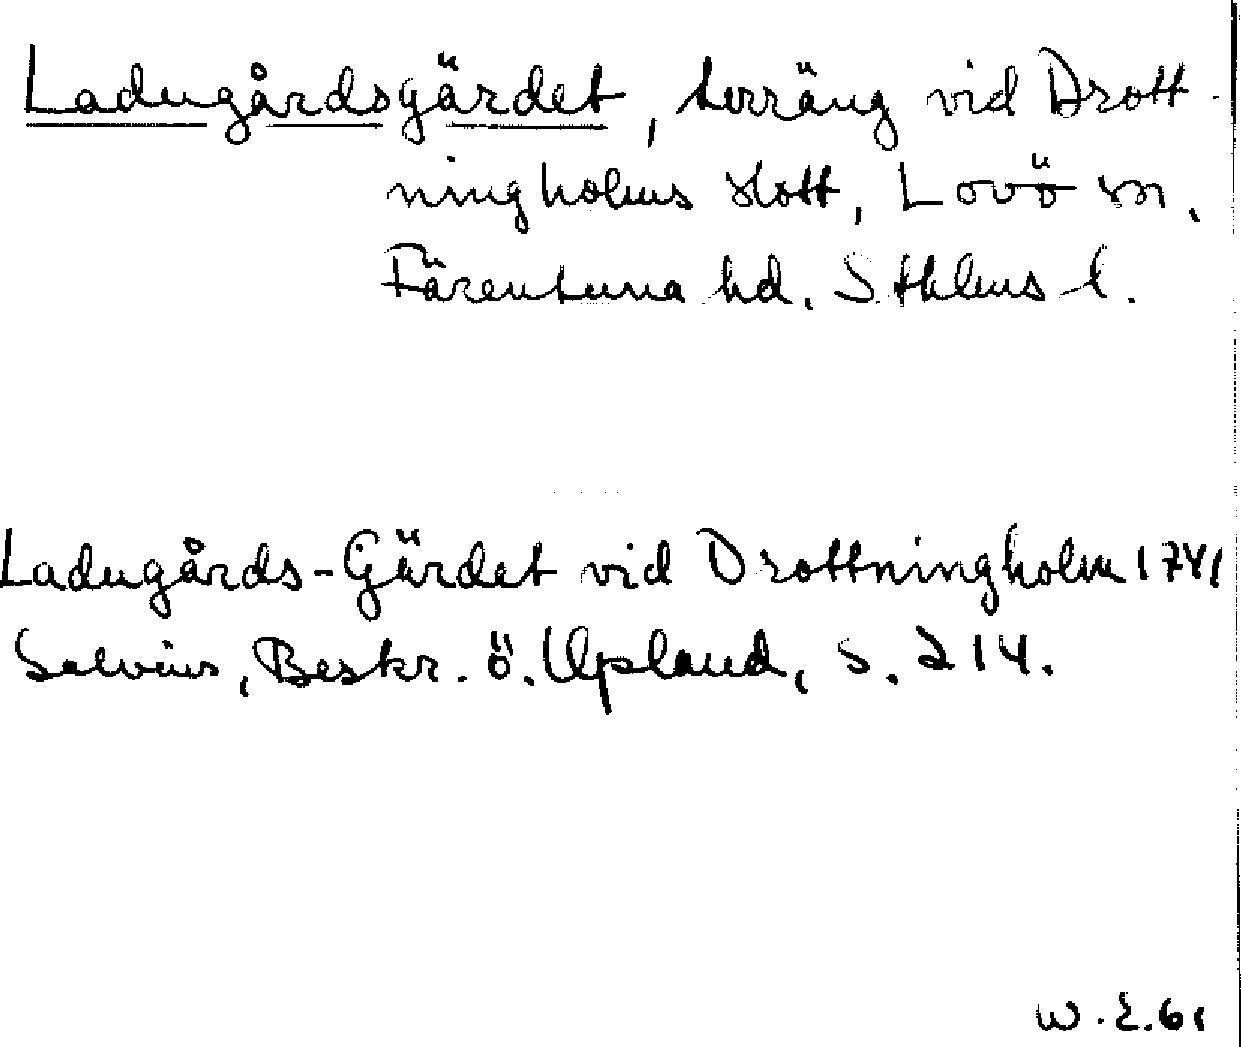 Ladugårdsgärdet, terräng vid Drott-
ningholms slott, Lovö sn,
Färentuna hd. Sthlms l.
Ladugårds-Gärdet vid Drottningholm 1741
Salvius, Beskr. ö. Upland, s. 214.
W. E. 61